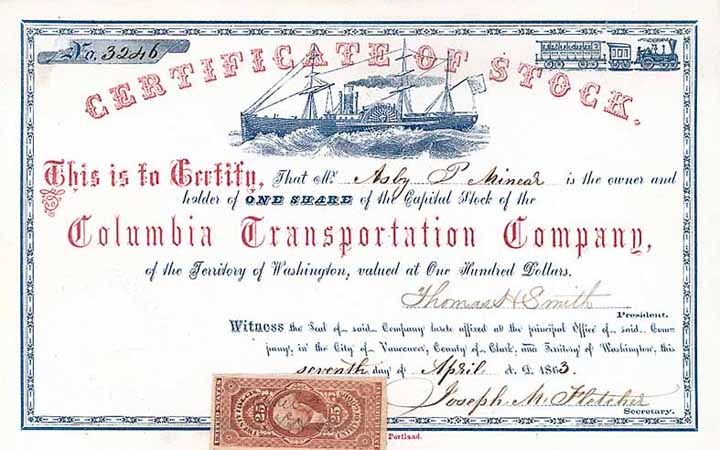 No. 3246
CERTIFICATE OF STOCK.
This is to Certify, That Mr Asby P Minear is the owner and
holder of ONE SHARE of the Capital Stock of the
Columbia Transportation Company,
of the Territory of Washington, valued at One Hundred Dollars.
Thomas H Smith
President.
Witness the Seal of said Company hereto affixed at the principal Office of said Com-
pany, in the City of Vancouver, County of Clark, and Territory of Washington, this
seventh day of April A. D. 1863.
Joseph M. Fletcher
Secretary.
25 25
UNITED STATES
Portland.